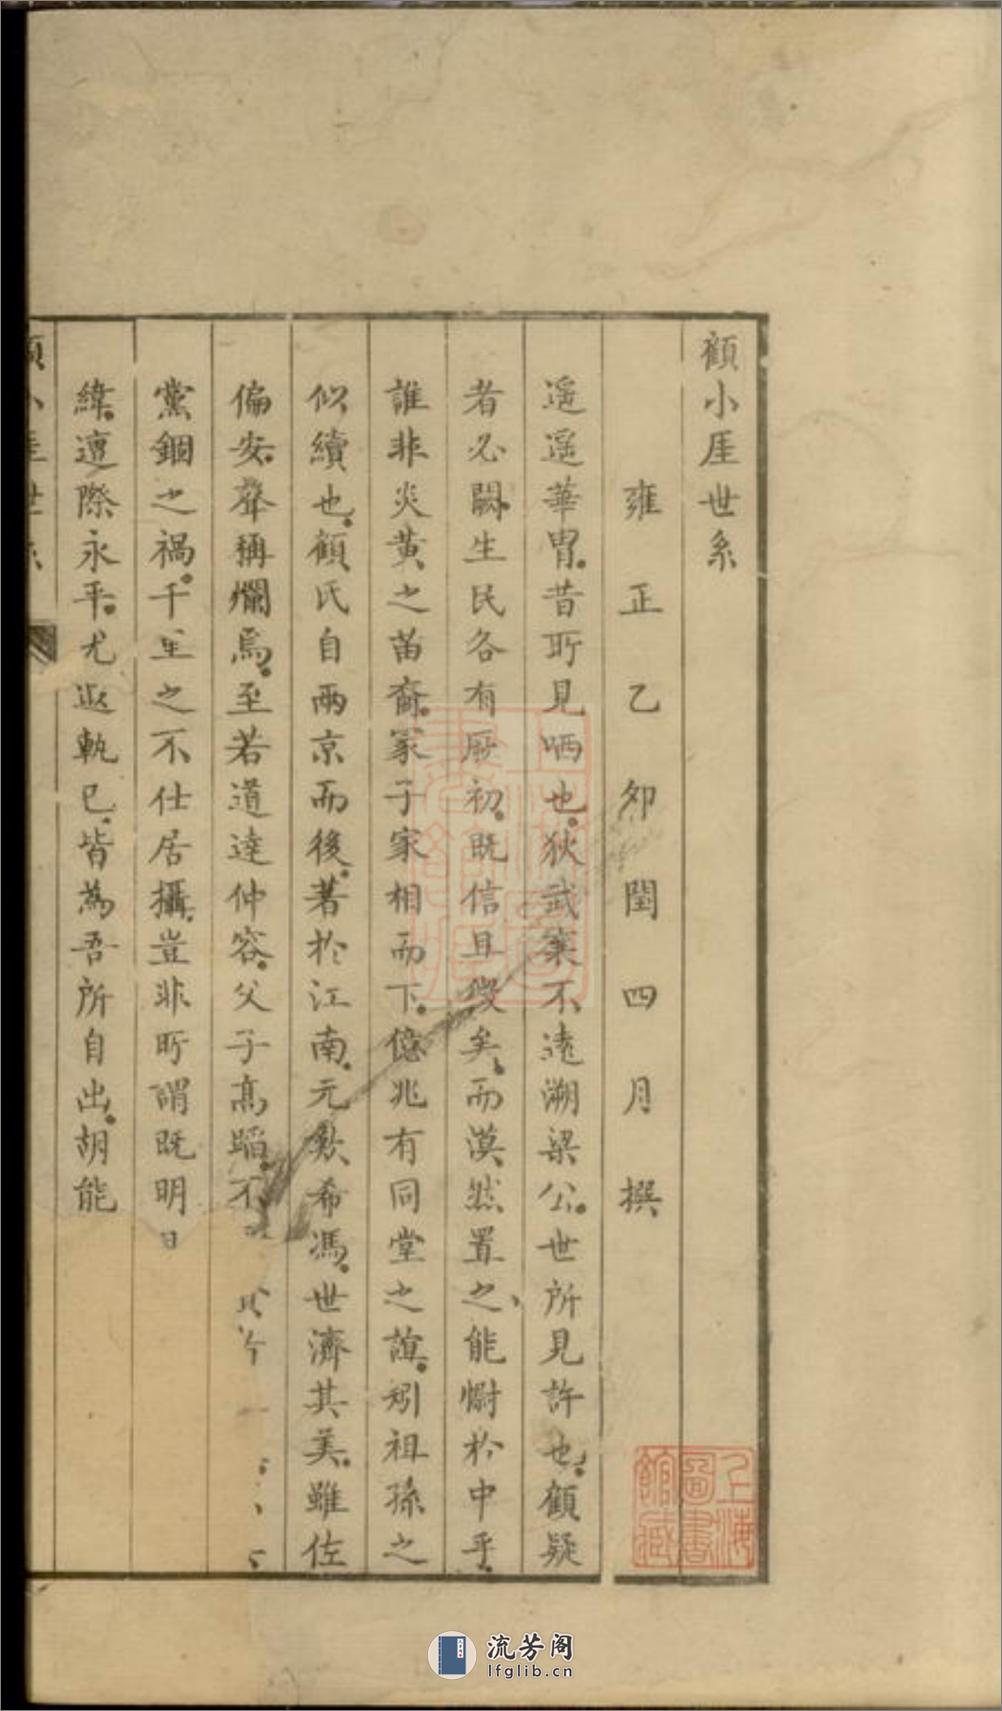 顧小厓世系
雍正乙夘閏四月撰
遥遥華胄昔所見哂也狄武襄不遠溯梁公世所見許也顧疑
者必闕生民各有厥初既信且徵矣而漠然置之能慨於中乎
誰非炎黄之苗裔冢子家相而下億兆有同堂之誼矧祖孫之
似續也顧氏自兩京而後著於江南元歎希馮世濟其美雖佐
偏安聲稱爛焉至若道達仲容父子高蹈不
黨錮之禍千里之不仕居攝豈非所謂既明
緯邅際永平尤返軌已皆為吾所自出胡能
顧小厓世系
上海圖書館藏
流芳阁
lfglib.cn